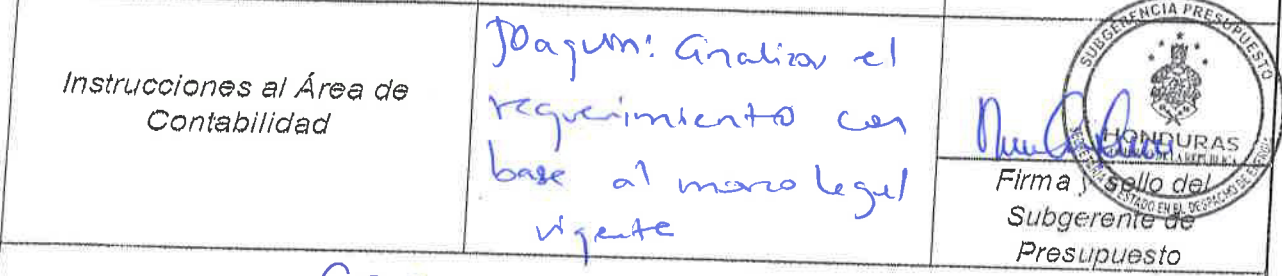 Instrucciones al Área de
Contabilidad
Joaquin: Analizar el
requerimiento con
base al marco legal
vigente
SUBGERENCIA PRESUPUESTO
HONDURAS
Firma y sello del
Subgerente de
Presupuesto